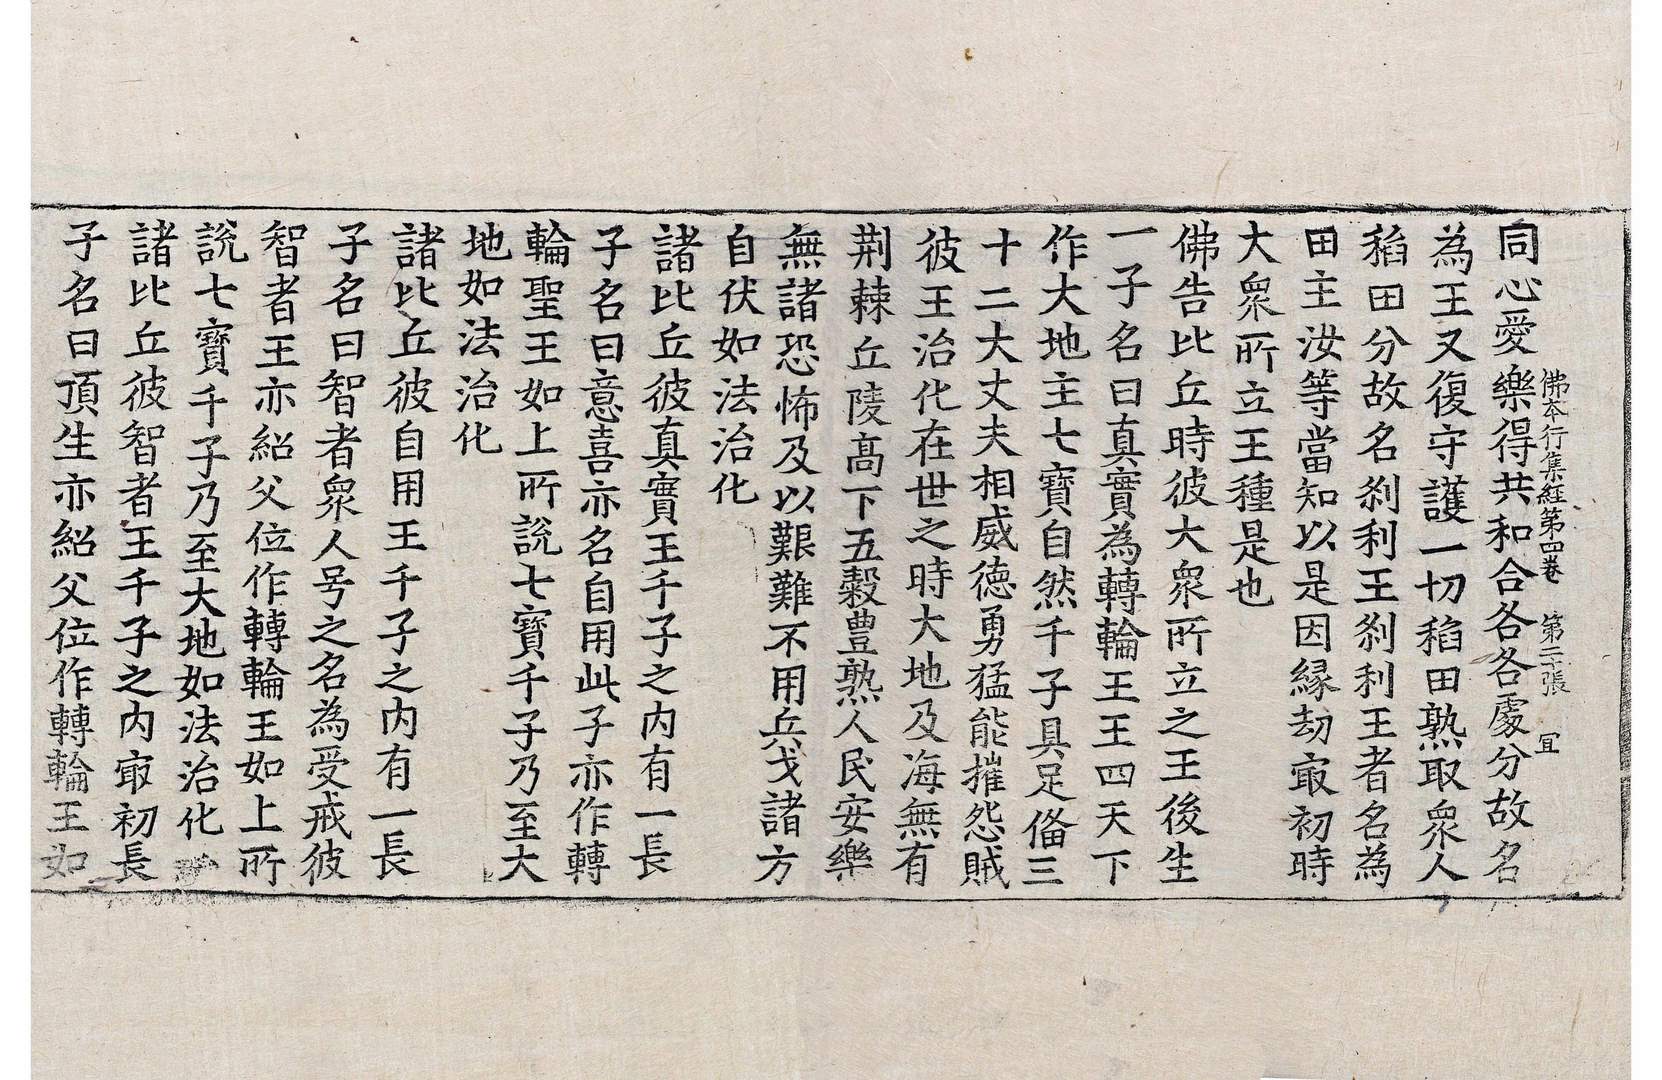 佛本行集經第四卷　第二張　冝
同心愛樂得共和合各各處分故名
為王又復守護一切稻田熟取衆人
稻田分故名刹利王刹利王者名為
田主汝等當知以是因縁劫㝡初時
大衆所立王種是也
佛告比丘時彼大衆所立之王後生
一子名曰真實為轉輪王王四天下
作大地主七寶自然千子具足俻三
十二大丈夫相威德勇猛能摧怨賊
彼王治化在世之時大地及海無有
荆棘丘陵髙下五穀豊熟人民安樂
無諸恐怖及以艱難不用兵戈諸方
自伏如法治化
諸比丘彼真實王千子之内有一長
子名曰意喜亦名自用此子亦作轉
輪聖王如上所說七寶千子乃至大
地如法治化
諸比丘彼自用王千子之内有一長
子名曰智者衆人号之名為受戒彼
智者王亦紹父位作轉輪王如上所
說七寶千子乃至大地如法治化
諸比丘彼智者王千子之内㝡初長
子名曰頂生亦紹父位作轉輪王如